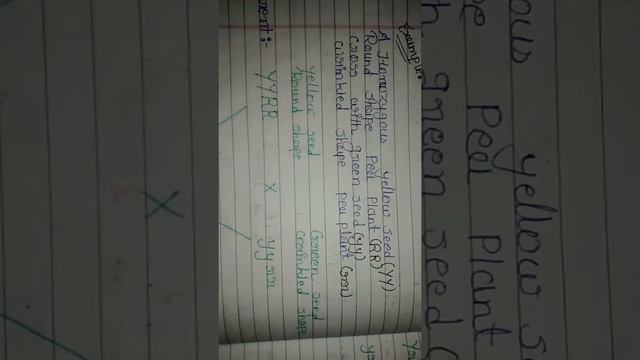 Example:
A Homozygous yellow seed (YY)
Round shape Pea Plant (RR)
cross with green seed (yy)
wrinkled shape pea plant (rr)
yellow seed Green seed
Round shape wrinkled shape
ment:- YYRR X yyrr